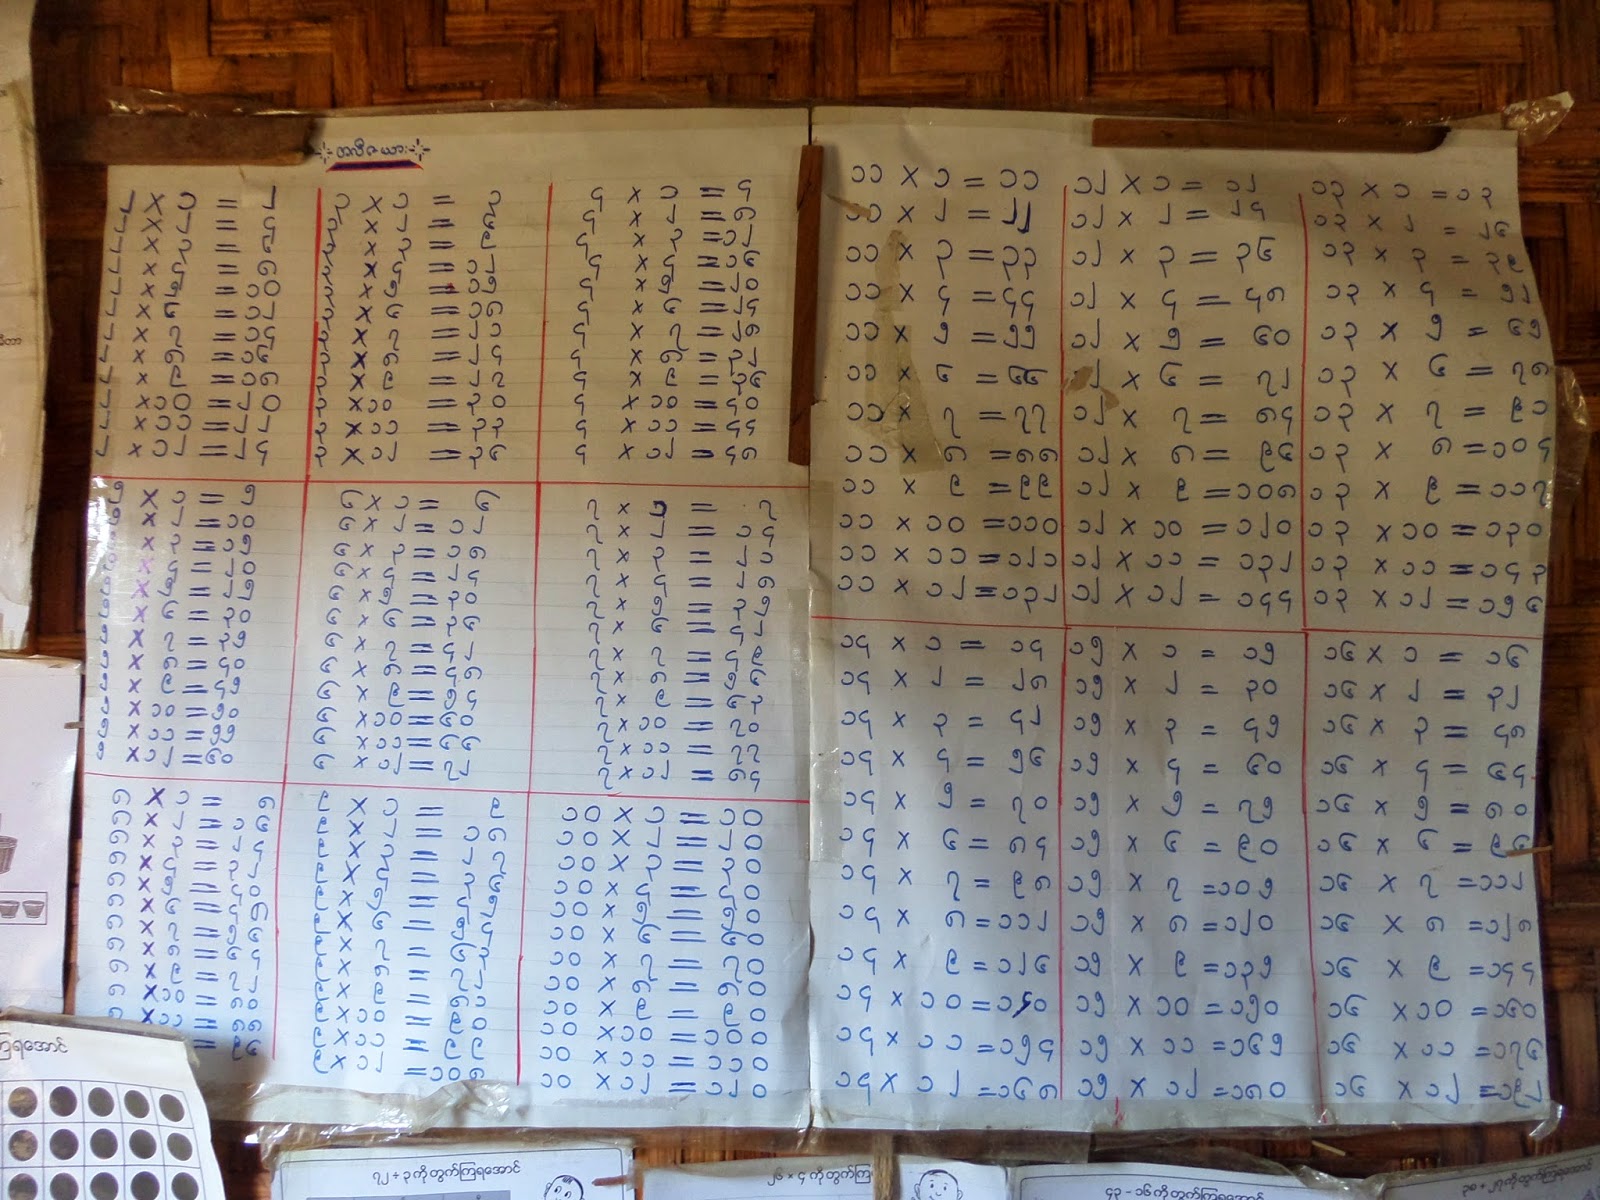 အလီဇယား
၂ × ၁ = ၂ ၃ × ၁ = ၃ ၄ × ၁ = ၄
၂ × ၂ = ၄ ၃ × ၂ = ၆ ၄ × ၂ = ၈
၂ × ၃ = ၆ ၃ × ၃ = ၉ ၄ × ၃ = ၁၂
၂ × ၄ = ၈ ၃ × ၄ = ၁၂ ၄ × ၄ = ၁၆
၂ × ၅ = ၁၀ ၃ × ၅ = ၁၅ ၄ × ၅ = ၂၀
၂ × ၆ = ၁၂ ၃ × ၆ = ၁၈ ၄ × ၆ = ၂၄
၂ × ၇ = ၁၄ ၃ × ၇ = ၂၁ ၄ × ၇ = ၂၈
၂ × ၈ = ၁၆ ၃ × ၈ = ၂၄ ၄ × ၈ = ၃၂
၂ × ၉ = ၁၈ ၃ × ၉ = ၂၇ ၄ × ၉ = ၃၆
၂ × ၁၀ = ၂၀ ၃ × ၁၀ = ၃၀ ၄ × ၁၀ = ၄၀
၂ × ၁၁ = ၂၂ ၃ × ၁၁ = ၃၃ ၄ × ၁၁ = ၄၄
၂ × ၁၂ = ၂၄ ၃ × ၁၂ = ၃၆ ၄ × ၁၂ = ၄၈
၅ × ၁ = ၅ ၆ × ၁ = ၆ ၇ × ၁ = ၇
၅ × ၂ = ၁၀ ၆ × ၂ = ၁၂ ၇ × ၂ = ၁၄
၅ × ၃ = ၁၅ ၆ × ၃ = ၁၈ ၇ × ၃ = ၂၁
၅ × ၄ = ၂၀ ၆ × ၄ = ၂၄ ၇ × ၄ = ၂၈
၅ × ၅ = ၂၅ ၆ × ၅ = ၃၀ ၇ × ၅ = ၃၅
၅ × ၆ = ၃၀ ၆ × ၆ = ၃၆ ၇ × ၆ = ၄၂
၅ × ၇ = ၃၅ ၆ × ၇ = ၄၂ ၇ × ၇ = ၄၉
၅ × ၈ = ၄၀ ၆ × ၈ = ၄၈ ၇ × ၈ = ၅၆
၅ × ၉ = ၄၅ ၆ × ၉ = ၅၄ ၇ × ၉ = ၆၃
၅ × ၁၀ = ၅၀ ၆ × ၁၀ = ၆၀ ၇ × ၁၀ = ၇၀
၅ × ၁၁ = ၅၅ ၆ × ၁၁ = ၆၆ ၇ × ၁၁ = ၇၇
၅ × ၁၂ = ၆၀ ၆ × ၁၂ = ၇၂ ၇ × ၁၂ = ၈၄
၈ × ၁ = ၈ ၉ × ၁ = ၉ ၁၀ × ၁ = ၁၀
၈ × ၂ = ၁၆ ၉ × ၂ = ၁၈ ၁၀ × ၂ = ၂၀
၈ × ၃ = ၂၄ ၉ × ၃ = ၂၇ ၁၀ × ၃ = ၃၀
၈ × ၄ = ၃၂ ၉ × ၄ = ၃၆ ၁၀ × ၄ = ၄၀
၈ × ၅ = ၄၀ ၉ × ၅ = ၄၅ ၁၀ × ၅ = ၅၀
၈ × ၆ = ၄၈ ၉ × ၆ = ၅၄ ၁၀ × ၆ = ၆၀
၈ × ၇ = ၅၆ ၉ × ၇ = ၆၃ ၁၀ × ၇ = ၇၀
၈ × ၈ = ၆၄ ၉ × ၈ = ၇၂ ၁၀ × ၈ = ၈၀
၈ × ၉ = ၇၂ ၉ × ၉ = ၈၁ ၁၀ × ၉ = ၉၀
၈ × ၁၀ = ၈၀ ၉ × ၁၀ = ၉၀ ၁၀ × ၁၀ = ၁၀၀
၈ × ၁၁ = ၈၈ ၉ × ၁၁ = ၉၉ ၁၀ × ၁၁ = ၁၁၀
၉ × ၁၂ = ၁၀၈ ၁၀ × ၁၂ = ၁၂၀
၁၁ × ၁ = ၁၁ ၁၂ × ၁ = ၁၂ ၁၃ × ၁ = ၁၃
၁၁ × ၂ = ၂၂ ၁၂ × ၂ = ၂၄ ၁၃ × ၂ = ၂၆
၁၁ × ၃ = ၃၃ ၁၂ × ၃ = ၃၆ ၁၃ × ၃ = ၃၉
၁၁ × ၄ = ၄၄ ၁၂ × ၄ = ၄၈ ၁၃ × ၄ = ၅၂
၁၁ × ၅ = ၅၅ ၁၂ × ၅ = ၆၀ ၁၃ × ၅ = ၆၅
၁၁ × ၆ = ၆၆ ၁၂ × ၆ = ၇၂ ၁၃ × ၆ = ၇၈
၁၁ × ၇ = ၇၇ ၁၂ × ၇ = ၈၄ ၁၃ × ၇ = ၉၁
၁၁ × ၈ = ၈၈ ၁၂ × ၈ = ၉၆ ၁၃ × ၈ = ၁၀၄
၁၁ × ၉ = ၉၉ ၁၂ × ၉ = ၁၀၈ ၁၃ × ၉ = ၁၁၇
၁၁ × ၁၀ = ၁၁၀ ၁၂ × ၁၀ = ၁၂၀ ၁၃ × ၁၀ = ၁၃၀
၁၁ × ၁၁ = ၁၂၁ ၁၂ × ၁၁ = ၁၃၂ ၁၃ × ၁၁ = ၁၄၃
၁၁ × ၁၂ = ၁၃၂ ၁၂ × ၁၂ = ၁၄၄ ၁၃ × ၁၂ = ၁၅၆
၁၄ × ၁ = ၁၄ ၁၅ × ၁ = ၁၅ ၁၆ × ၁ = ၁၆
၁၄ × ၂ = ၂၈ ၁၅ × ၂ = ၃၀ ၁၆ × ၂ = ၃၂
၁၄ × ၃ = ၄၂ ၁၅ × ၃ = ၄၅ ၁၆ × ၃ = ၄၈
၁၄ × ၄ = ၅၆ ၁၅ × ၄ = ၆၀ ၁၆ × ၄ = ၆၄
၁၄ × ၅ = ၇၀ ၁၅ × ၅ = ၇၅ ၁၆ × ၅ = ၈၀
၁၄ × ၆ = ၈၄ ၁၅ × ၆ = ၉၀ ၁၆ × ၆ = ၉၆
၁၄ × ၇ = ၉၈ ၁၅ × ၇ = ၁၀၅ ၁၆ × ၇ = ၁၁၂
၁၄ × ၈ = ၁၁၂ ၁၅ × ၈ = ၁၂၀ ၁၆ × ၈ = ၁၂၈
၁၄ × ၉ = ၁၂၆ ၁၅ × ၉ = ၁၃၅ ၁၆ × ၉ = ၁၄၄
၁၄ × ၁၀ = ၁၄၀ ၁၅ × ၁၀ = ၁၅၀ ၁၆ × ၁၀ = ၁၆၀
၁၄ × ၁၁ = ၁၅၄ ၁၅ × ၁၁ = ၁၆၅ ၁၆ × ၁၁ = ၁၇၆
၁၄ × ၁၂ = ၁၆၈ ၁၅ × ၁၂ = ၁၈၀ ၁၆ × ၁၂ = ၁၉၂
ကြရအောင်
၇၂ ÷ ၃ ကိုတွက်ကြရအောင်
၂၆ × ၄ ကိုတွက်ကြ
၄၃ - ၁၆ ကိုတွက်ကြရအောင်
၃၈ + ၂၇ ကိုတွက်ကြရအောင်